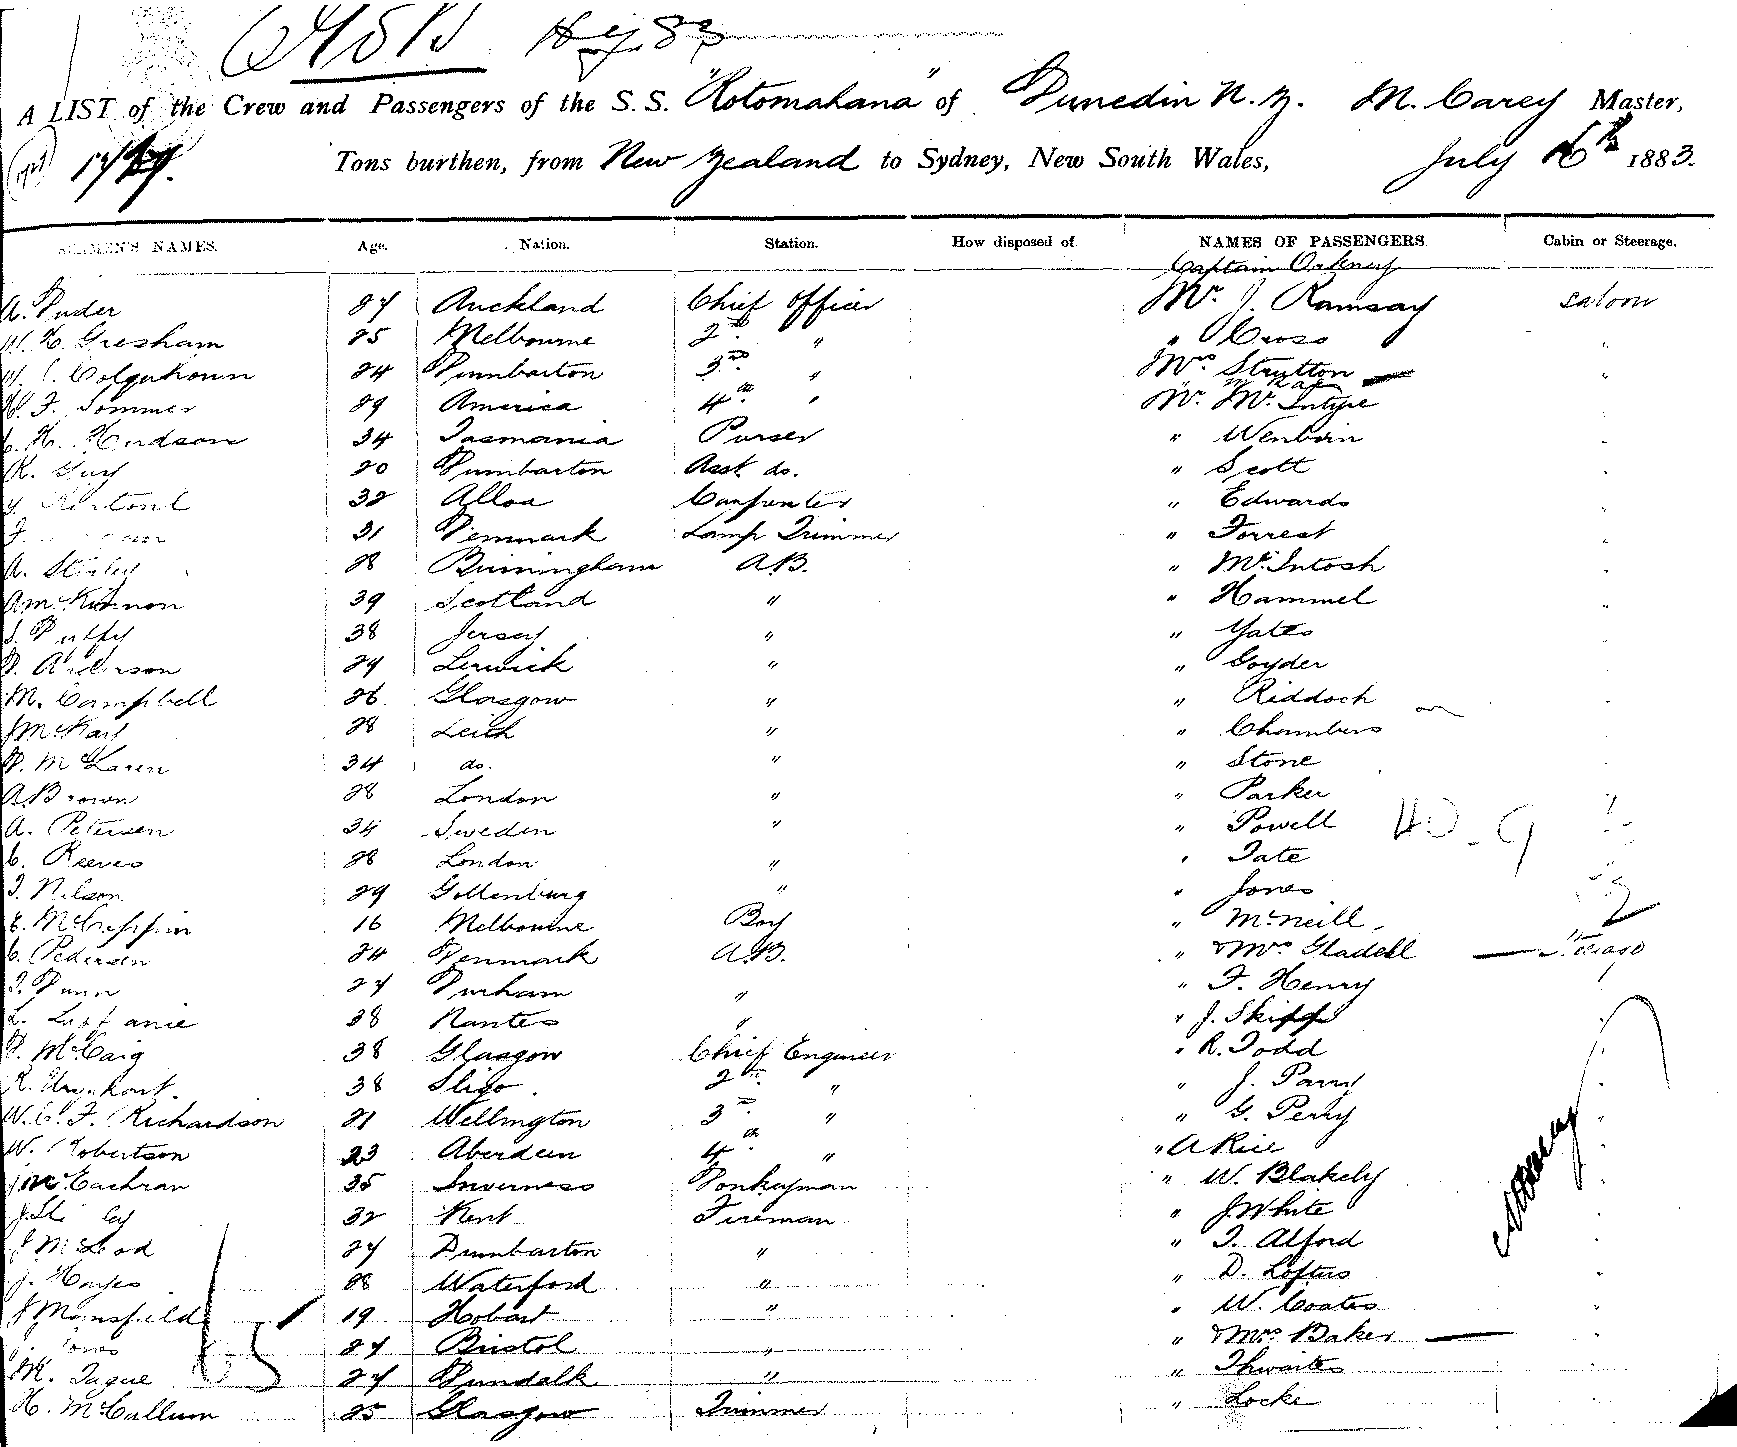 A LIST of the Crew and Passengers of the S. S. "Rotomahana" of Dunedin N. Z. M. Carey Master,
1727. Tons burthen, from New Zealand to Sydney, New South Wales, July 1883.
SEAMEN'S NAMES. Age. Nation. Station. How disposed of. NAMES OF PASSENGERS. Cabin or Steerage.
Captain Orkney
A. Puder 27 Auckland Chief Officer Mr. J. Ramsay Saloon
Gresham 25 Melbourne 2nd " " Cross "
Colquhoun 24 Dumbarton 3rd " Mrs Strutton "
F. Sommer 29 America 4th " Mr. McIntyre "
H. Hudson 34 Tasmania Purser " Wenborn
R. Guy 20 Dumbarton Asst. do. " Scott
32 Alloa Carpenter " Edwards
31 Denmark Lamp Trimmer " Forrest
A. 28 Birmingham A.B. " McIntosh
A McKinnon 39 Scotland " " Hammel
38 Jersey " " Yates
D. Anderson 24 Lerwick " " Goyder
M. Campbell 26 Glasgow " " Riddoch
J McKay 28 Leith " " Chambers
D. McLaren 34 do. " " Stone
A Brown 28 London " " Parker
A. Petersen 34 Sweden " " Powell
C. Reeves 28 London " " Tate
J. Nilson 29 Gottenburg " " Jones
16 Melbourne Boy " McNeill
C. Pedersen 24 Denmark A.B. " & Mrs Gladell
J. Dunn 27 Durham " " F. Henry
38 Nantes " " J. Skipp
D. McCaig 38 Glasgow Chief Engineer " R. Todd
R. Urquhart 38 Sligo 2nd " " J. Parry
W. G. F. Richardson 21 Wellington 3rd " " G. Perry
W. Robertson 23 Aberdeen 4th " " A Rice
J McEachran 35 Inverness Donkeyman " W. Blakely
32 Kent Fireman " J. White
J McLeod 27 Dumbarton " " T. Alford
J. Hayes 28 Waterford " " D. Loftus
J Mansfield 19 Hobart " " W. Coates
J. Jones 27 Bristol " " & Mrs Baker
M. Tague 27 Dundalk " " Thwaites
H. McCallum 25 Glasgow Trimmer " Locke